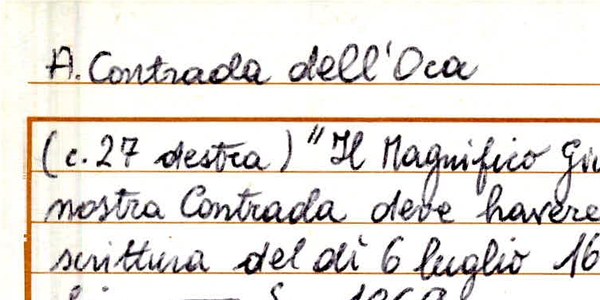 A. Contrada dell'Oca
(c. 27 destra) "Il Magnifico
nostra Contrada deve havere
scrittura del dì 6 luglio 16